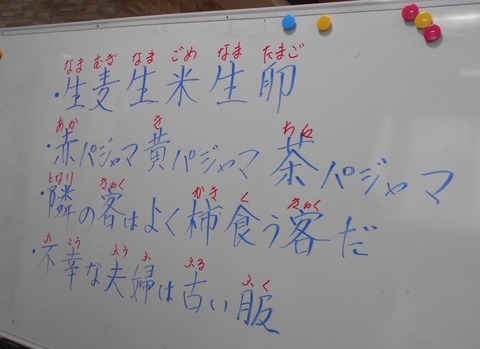 なま むぎ なま ごめ なま たまご
・生麦生米生卵
あか き ちゃ
・赤パジャマ黄パジャマ茶パジャマ
となり きゃく かき く きゃく
・隣の客はよく柿食う客だ
ふ こう ふう ふ ふる ふく
・不幸な夫婦は古い服